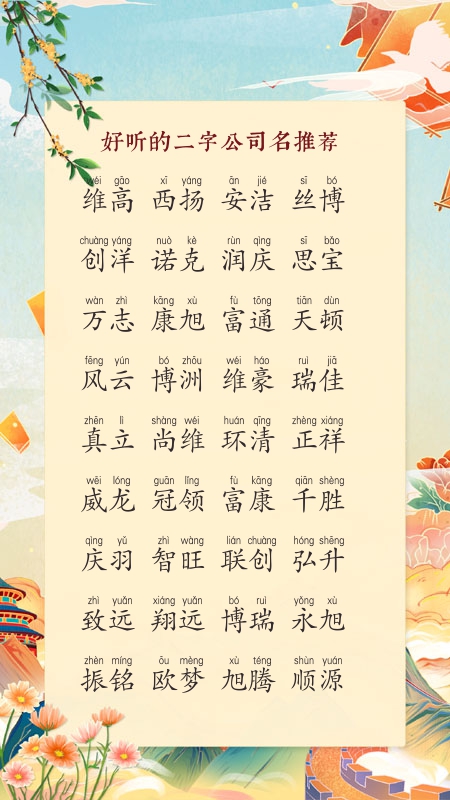 好听的二字公司名推荐
wéi gāo xī yáng ān jié sī bó
维高 西扬 安洁 丝博
chuàng yáng nuò kè rùn qìng sī bǎo
创洋 诺克 润庆 思宝
wàn zhì kāng xù fù tōng tiān dùn
万志 康旭 富通 天顿
fēng yún bó zhōu wéi háo ruì jiā
风云 博洲 维豪 瑞佳
zhēn lì shàng wéi huán qīng zhèng xiáng
真立 尚维 环清 正祥
wēi lóng guān lǐng fù kāng qiān shèng
威龙 冠领 富康 千胜
qìng yǔ zhì wàng lián chuàng hóng shēng
庆羽 智旺 联创 弘升
zhì yuǎn xiáng yuǎn bó ruì yǒng xù
致远 翔远 博瑞 永旭
zhèn míng ōu mèng xù téng shùn yuán
振铭 欧梦 旭腾 顺源